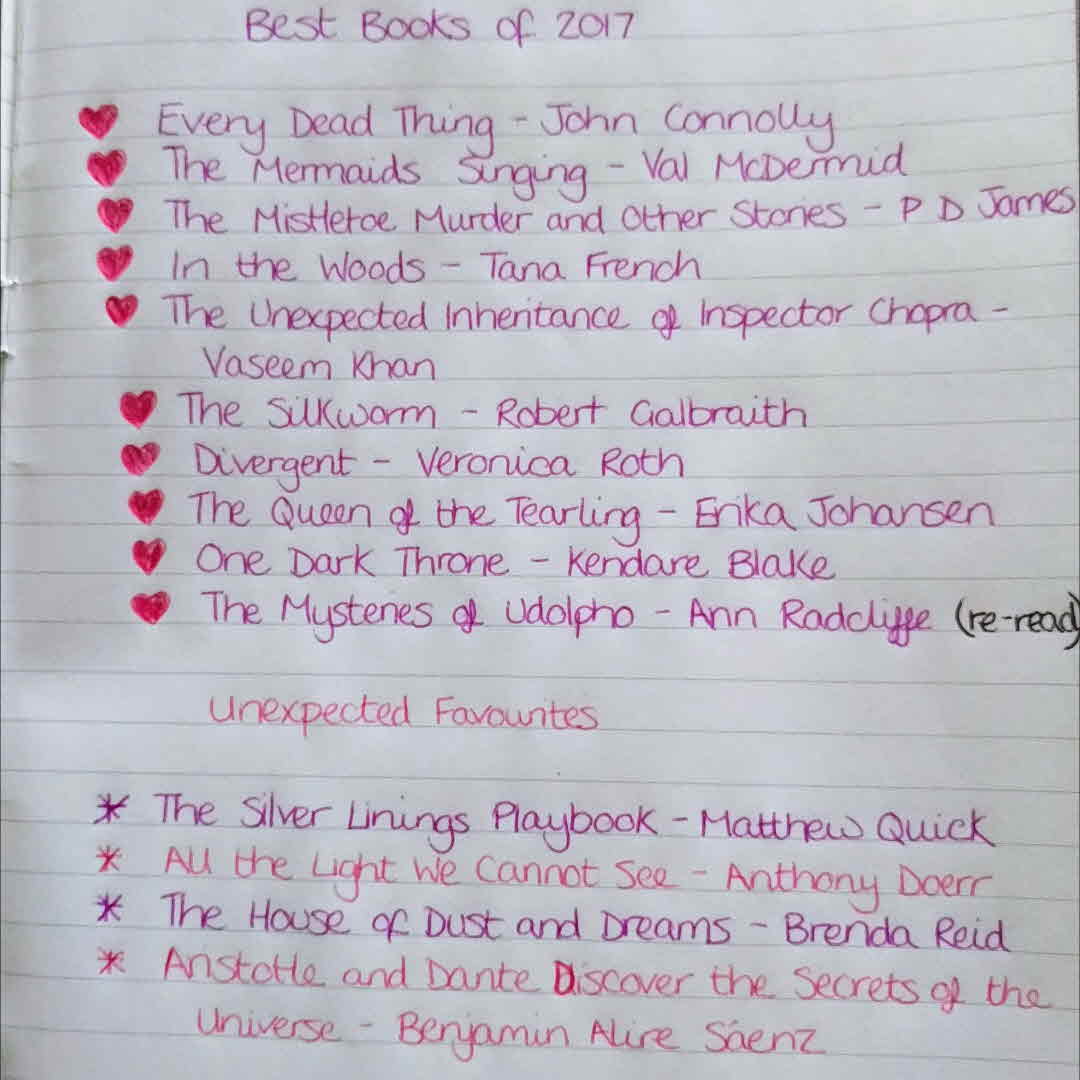 Best Books of 2017
Every Dead Thing - John Connolly
The Mermaids Singing - Val McDermid
The Mistletoe Murder and Other Stories - P D James
In the Woods - Tana French
The Unexpected Inheritance of Inspector Chopra -
Vaseem Khan
The Silkworm - Robert Galbraith
Divergent - Veronica Roth
The Queen of the Tearling - Erika Johansen
One Dark Throne - Kendare Blake
The Mysteries of Udolpho - Ann Radcliffe (re-read)
Unexpected Favourites
* The Silver Linings Playbook - Matthew Quick
* All the Light We Cannot See - Anthony Doerr
* The House of Dust and Dreams - Brenda Reid
* Aristotle and Dante Discover the Secrets of the
Universe - Benjamin Alire Sáenz